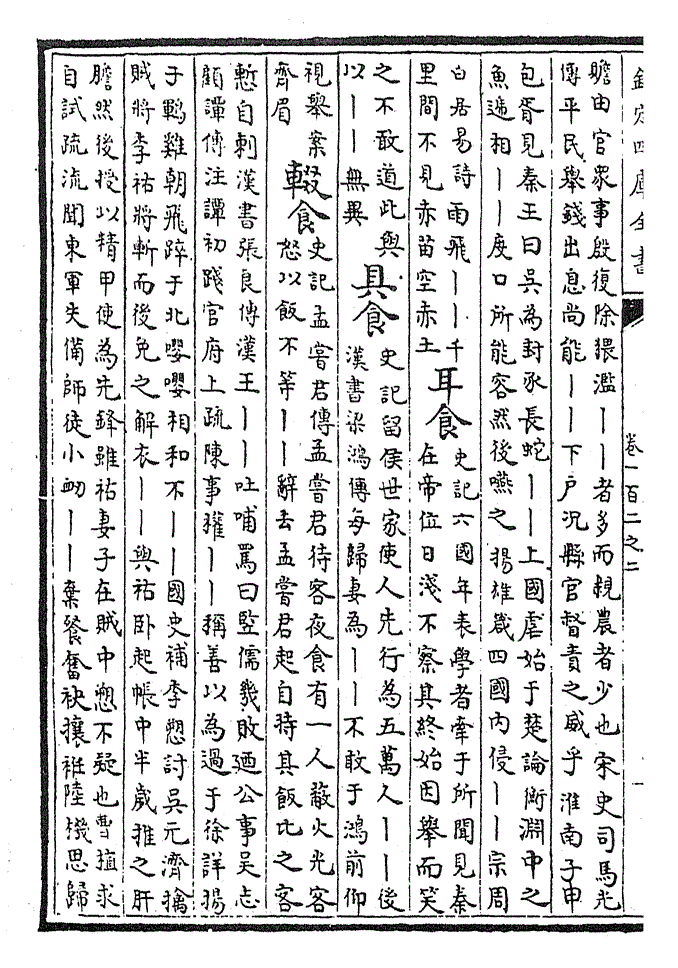 欽定四庫全書
卷一百二之二
瞻由官衆事殷復除猥濫丨丨者多而親農者少也宋史司馬光
傳平民舉錢出息尚能丨丨下户况縣官督責之威乎淮南子申
包胥見秦王曰吳為封豕長蛇丨丨上國虐始于楚論衡淵中之
魚遞相丨丨度口所能容然後嚥之 揚雄箴四國内侵丨丨宗周
白居易詩雨飛丨丨千
里間不見赤苗空赤土
耳食
史記六國年表學者牽于所聞見秦
在帝位日淺不察其終始因舉而笑
之不敢道此與
以丨丨無異
具食
史記留侯世家使人先行為五萬人丨丨後
漢書梁鴻傳每歸妻為丨丨不敢于鴻前仰
視舉案
齊眉
輟食
史記孟嘗君傳孟嘗君待客夜食有一人蔽火光客
怒以飯不等丨丨辭去孟嘗君起自持其飯比之客
慙自剄漢書張良傳漢王丨丨吐哺罵曰豎儒幾敗迺公事吳志
顧譚傳注譚初踐官府上疏陳事權丨丨稱善以為過于徐詳揚
于鶤雞朝飛踤于北嚶嚶相和不丨丨國史補李愬討吳元濟擒
賊將李祐將斬而後免之解衣丨丨與祐卧起帳中半歲推之肝
膽然後授以精甲使為先鋒雖祐妻子在賊中愬不疑也曹植求
自試疏流聞東軍失備師徒小衂丨丨棄餐奮袂攘袵陸機思歸